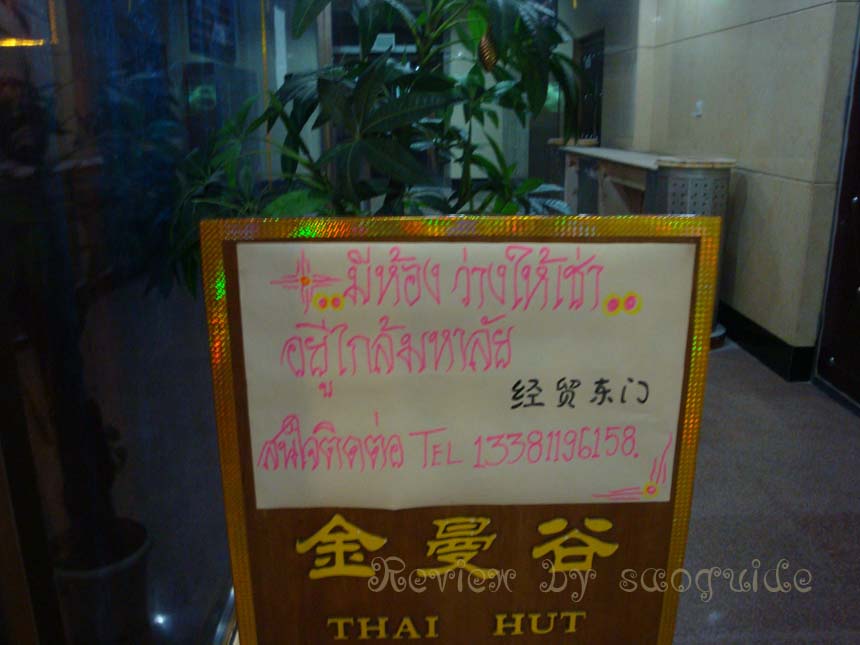 มีห้องว่างให้เช่า
อยู่ใกล้มหาลัย
经贸东门
สนใจติดต่อ TEL 13381196158.
金曼谷
Review by saoguide
THAI HUT